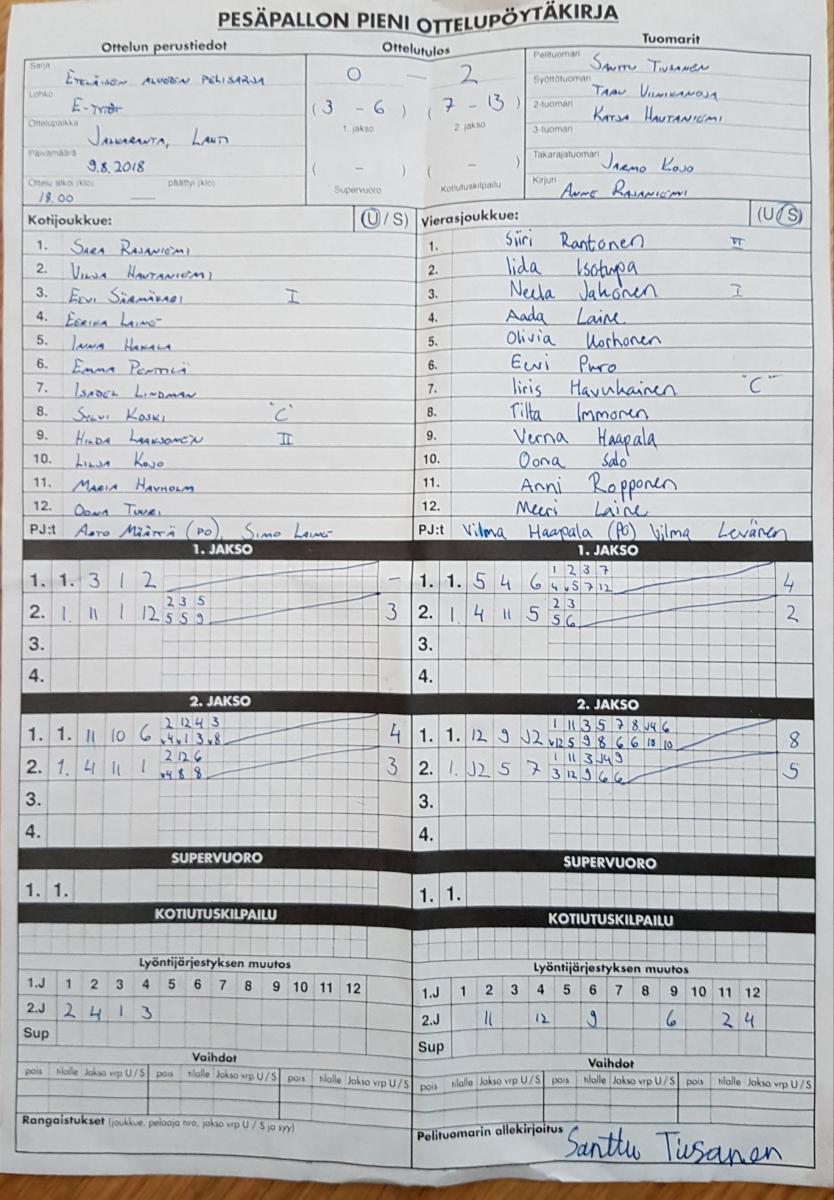 PESÄPALLON PIENI OTTELUPÖYTÄKIRJA
Ottelun perustiedot
Ottelutulos
Tuomarit
Sarja
ETELÄISEN ALUEEN PELISARJA
Lohko
Ottelupaikka
JALKARANTA, LAHTI
Päivämäärä
9.8.2018
Ottelu alkoi (klo) päättyi (klo)
18.00 —
0 — 2
(3 - 6) (7 - 13)
1. jakso 2. jakso
( - ) ( - )
Supervuoro Kotiutuskilpailu
Pelituomari SANTTU TIUSANEN
Syöttötuomari TARU VIINIKANOJA
2-tuomari KATJA HAUTANIEMI
3-tuomari
Takarajatuomari JARMO KOJO
Kirjuri ANNE RAJANIEMI
Kotijoukkue: (U/S)
1. SARA RAJANIEMI
2. VILJA HAUTANIEMI
3. EEVI SÄRMÄKARI I
4. EERIKA LAINE
5. INNA HAKALA
6. EMMA PENTTILÄ
7. ISABEL LINDMAN
8. SYLVI KOSKI "C"
9. HILDA LAAKSONEN II
10. LILJA KOJO
11. MARIA HAVHOLM
12. OONA TUURI
PJ:t AATO MÄÄTTÄ (PO), SIMO LAINE
Vierasjoukkue: (U/S)
1. Siiri Rantonen
2. Iida Isotupa
3. Neela Jahonen I
4. Aada Laine
5. Olivia Korhonen
6. Eevi Puro
7. Iiris Havukainen "C"
8. Tilta Immonen
9. Verna Haapala
10. Oona Salo
11. Anni Ropponen
12. Meeri Laine
PJ:t Vilma Haapala (PO) Vilma Levänen
1. JAKSO
1. 1. 3 1 2 -
2. 1. 11 1 12 2 3 5 3
5 5 9
3.
4.
1. JAKSO
1. 1. 5 4 6 1 2 3 7 4
4 5 7 12
2. 1. 4 11 5 2 3 2
5 6
3.
4.
2. JAKSO
1. 1. 11 10 6 2 12 4 3 4
4 1 3 8
2. 1. 4 11 1 2 12 6 3
4 8 8
3.
4.
2. JAKSO
1. 1. 12 9 J2 1 11 3 5 7 8 J4 6 8
12 5 9 8 6 6 10 10
2. 1. J2 5 7 1 11 3 J4 9 5
3 12 9 6 6
3.
4.
SUPERVUORO
1. 1.
SUPERVUORO
1. 1.
KOTIUTUSKILPAILU
KOTIUTUSKILPAILU
Lyöntijärjestyksen muutos
1.J 1 2 3 4 5 6 7 8 9 10 11 12
2.J 2 4 1 3
Sup
Lyöntijärjestyksen muutos
1.J 1 2 3 4 5 6 7 8 9 10 11 12
2.J 11 12 9 6 2 4
Sup
Vaihdot
pois tilalle Jakso vrp U/S pois tilalle Jakso vrp U/S pois tilalle Jakso vrp U/S
Vaihdot
pois tilalle Jakso vrp U/S pois tilalle Jakso vrp U/S pois tilalle Jakso vrp U/S
Rangaistukset (joukkue, pelaaja nro, jakso vrp U / S ja syy)
Pelituomarin allekirjoitus Santtu Tiusanen